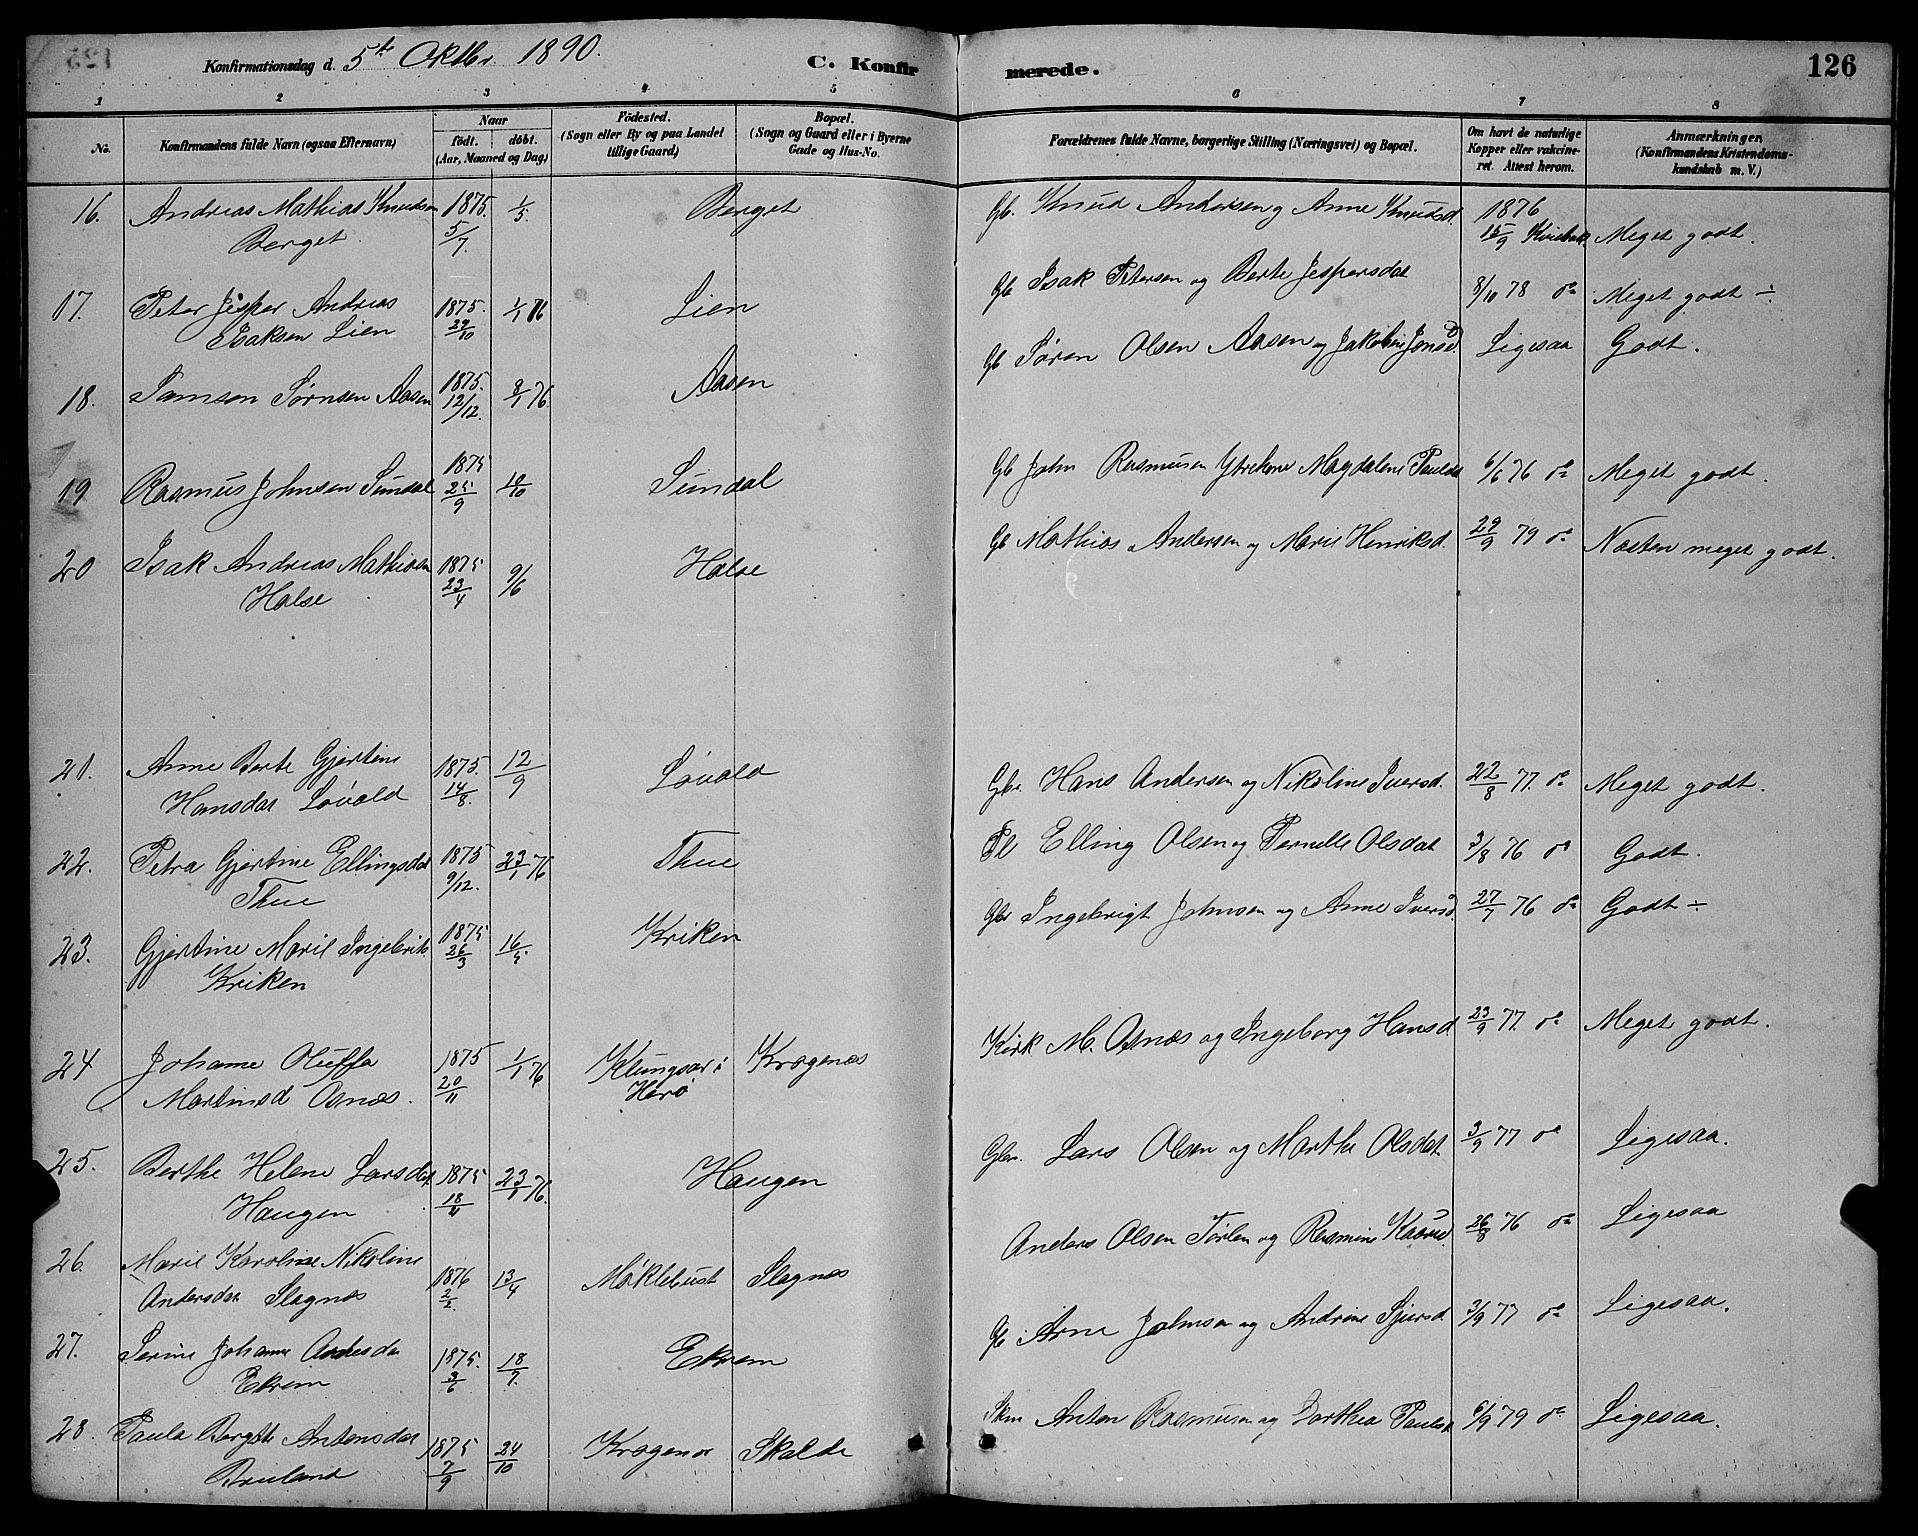 Konfirmationsdag d. 5te Oktbr 1890. C. Konfirmerede. 126
1 2 3 4 5 6 7 8
No. Konfirmandens fulde Navn (ogsaa Efternavn) Naar født. døbt. (Aar, Maaned og Dag) Fødested. (Sogn eller By og paa Landet tillige Gaard) Bopæl. (Sogn og Gaard eller i Byerne Gade og Hus-No. Forældrenes fulde Navne, borgerlige Stilling (Næringsvei) og Bopæl. Om havt de naturlige Kopper eller vakcineret. Attest herom. Anmærkninger, (Konfirmandens Kristendomskundskab m. V.)
16. Andreas Mathias Knudsen 1875. 1/5. Berget Gb. Knud Andersen og Anne Knudsd. 1876
Berget 5/7. 15/9 Meget godt.
17. Peter Jesper Andreas 1875. 1/1 76 Lien Gb Isak Petersen og Berte Jespersdat 8/10 78 do Meget godt ÷
Isaksen Lien 29/10
18. Samson Sørnsen Aasen 1875. 12/12. 8/1 76. Aasen Gb Søren Olsen Aasen og Jakobine Jonsd. Ligesaa Godt.
19 Rasmus Johnsen Sundal 1875 25/9 10/10 Sundal Gb John Rasmusen Magdalene Paulsd 6/6 76 do Meget godt.
20 Isak Andreas Mathiasen 1875 23/4 9/6 Halse Gb Mathias Andersen og Marie Henriksd. 29/9 79 do Næsten meget godt.
Halse
21. Anne Berte Gjertine 1875. 12/9 Løvold Gbr. Hans Andersen og Nikoline Iversd. 22/8 77. do Meget godt.
Hansdat Løvold 14/8.
22. Petra Gjertine Ellingsdat 1875 9/12. 23/1 76 Thue Pl Elling Olsen og Pernelle Olsdat 3/8 76 do Godt.
Thue
23. Gjertine Marie Ingebrikt 1875 26/3 16/5 Kriken Gbr Ingebrigt Johnsen og Anne Iversd. 27/7 76 do Godt ÷
Kriken
24 Johanne Oluffa 1875 1/1 76 Klungsør i Krogenæs Kirk M. Osnæs og Ingeborg Hansd. 23/9 77. do Meget godt.
Martinsd Osnæs. 20/11 Herø
25. Berthe Helene Larsdat. 1875 18/11 23/1 76. Haugen Gbr. Lars Olsen og Marthe Olsdat 3/9 77 do Ligesaa.
Haugen
26. Marie Karoline Nikoline 1876 2/2. 13/4 Møklebust Slagnæs Anders Olsen Tørlen og Rasmine 26/8 76 do Ligesaa
Andersdat Slagnæs
27. Serine Johanne Andesdat 1875. 3/6 18/7. Ekrem Gb. Arne Johnsen og Andrine Sjursd 3/9 77 do Ligesaa.
Ekrem
28. Paula Bergitte Antonsdat 1875 7/9 24/10 Krogenæs Skalde Anton Rasmusen og Dorthea Paulsd. 6/9 79 do Ligesaa.
Bruland